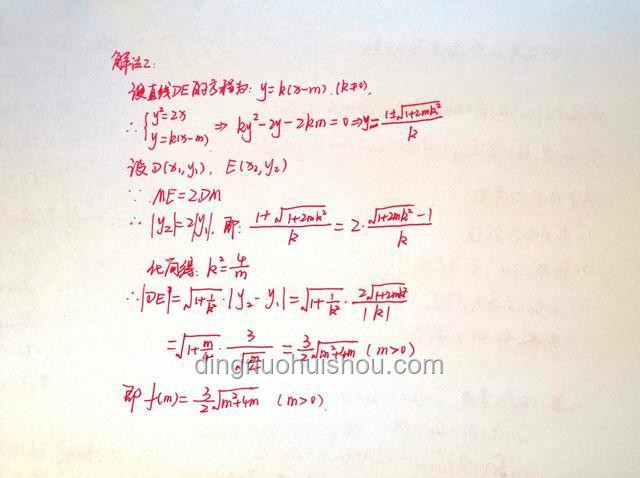 解法2:
设直线DE的方程为: y=k(x-m). (k≠0).
∴ {y²=2x y=k(x-m) ⇒ ky²-2y-2km=0 ⇒ y=(1±√(1+2mk²))/k
设 D(x₁,y₁), E(x₂,y₂)
∵ ME=2DM
∴ |y₂|=2|y₁|. 即: (1+√(1+2mk²))/k = 2·(√(1+2mk²)-1)/k
化简得: k²=4/m
∴|DE|=√(1+1/k²)·|y₂-y₁|=√(1+1/k²)·2√(1+2mk²)/|k|
=√(1+m/4)·3/√(m/4)=3/2√(m²+4m) (m>0)
dingnuohuishou.com
即 f(m)=3/2√(m²+4m) (m>0).